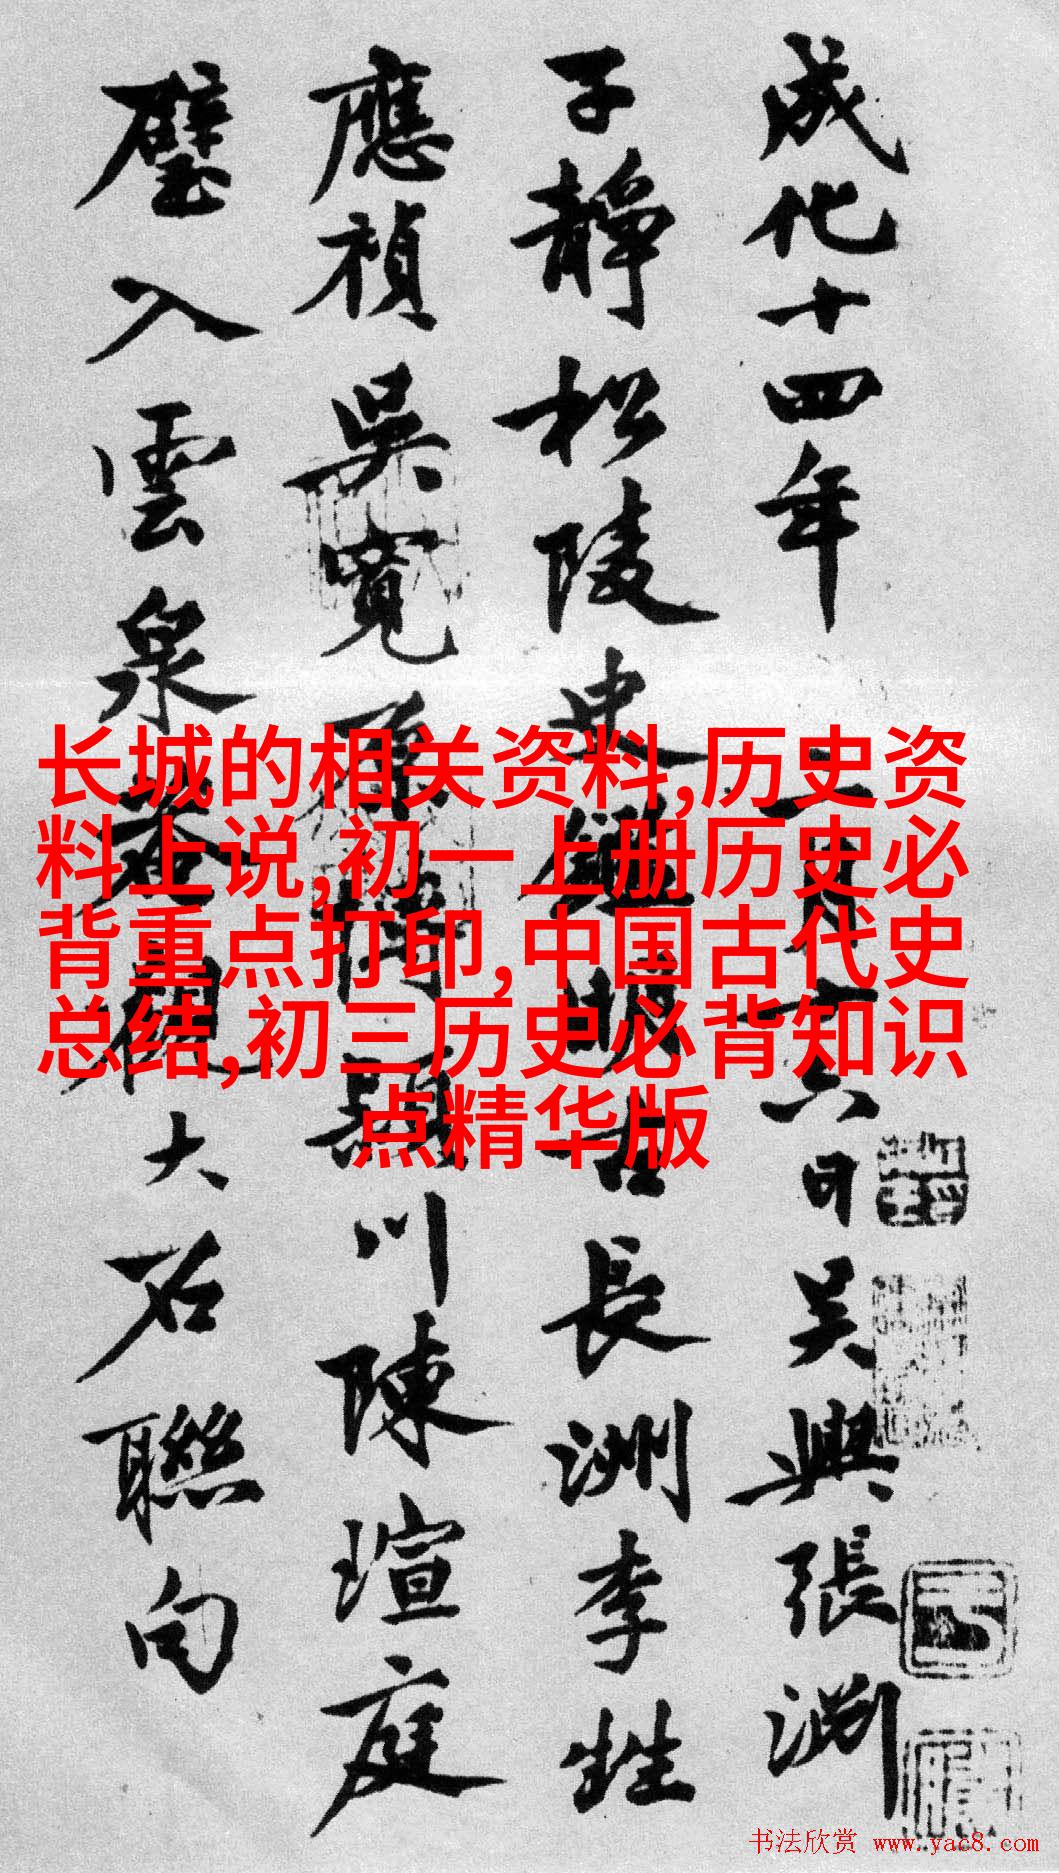 成化十四年二月十六日吴興張渊
子静松陵史鑑明古長洲李甡
應禎吳寬原博潁川陳瑄庭
璧入雲泉菴觀大石聯句
长城的相关资料,历史资
料上说,初一上册历史必
背重点打印,中国古代史
总结,初三历史必背知识
点精华版
书法欣赏 www.yac8.com